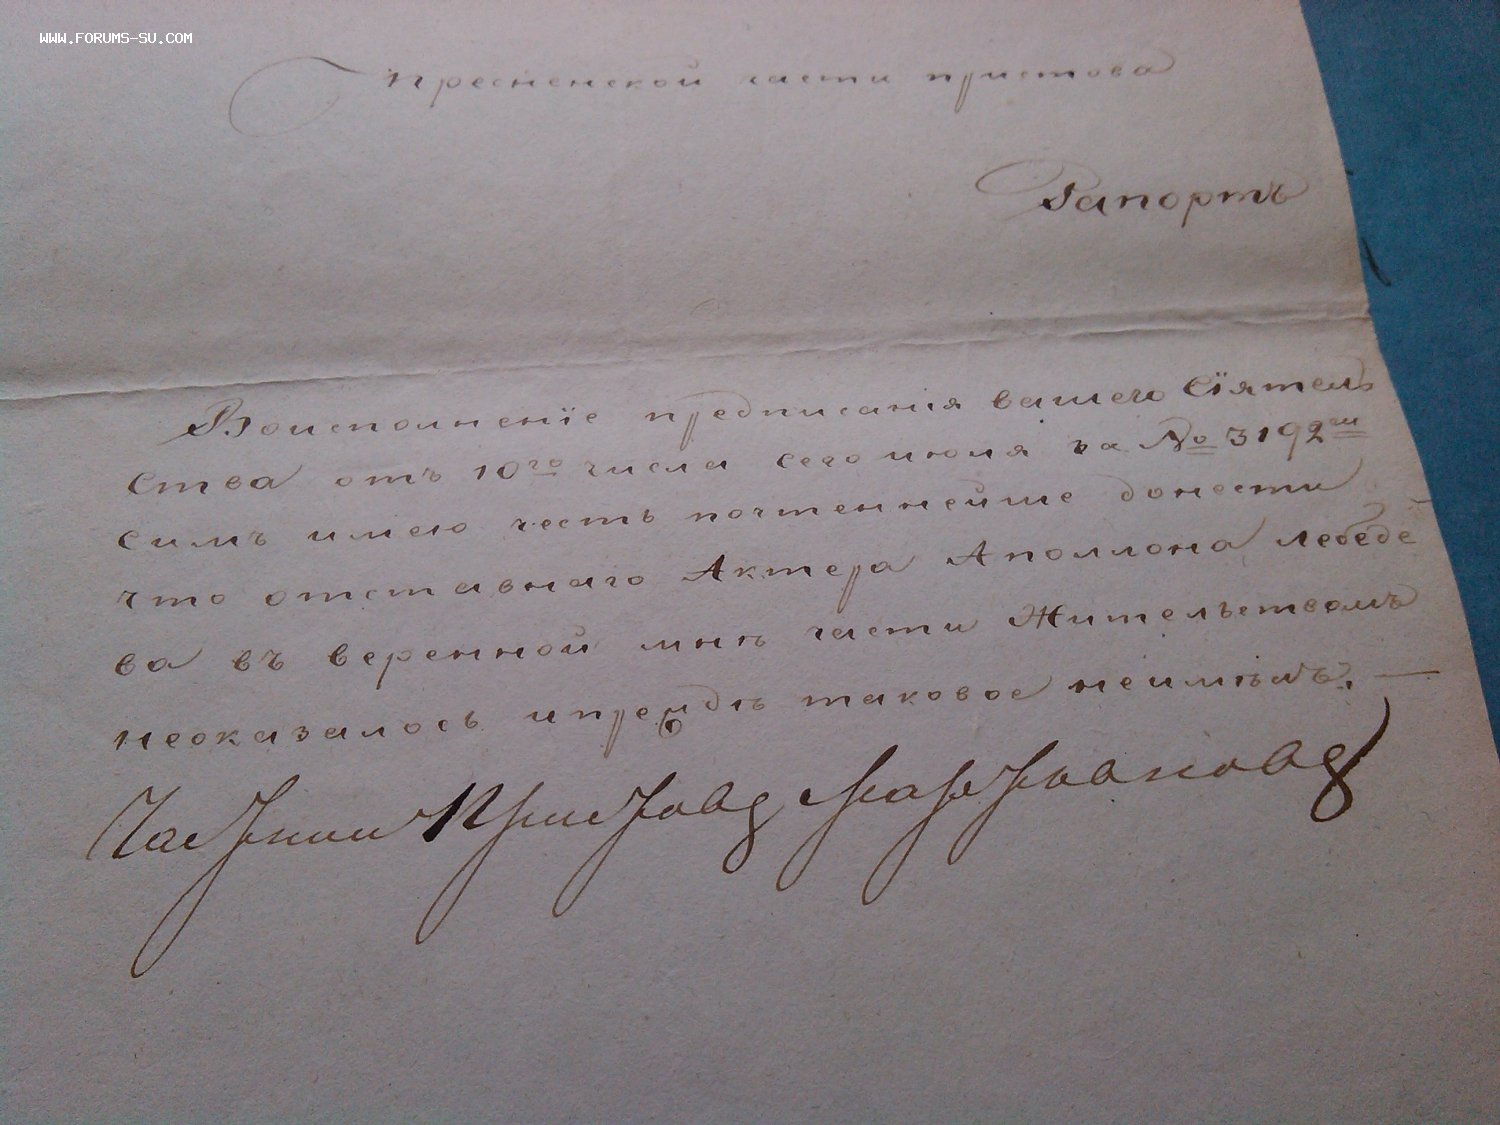 WWW.FORUMS-SU.COM
Пресненской части пристова
Рапортъ
Воисполненїе предписания вашего Сїятель
ства отъ 10го числа сего июля за № 3192мъ
симъ имею честь почтеннейше донести
что отставнаго Актера Аполлона лебеде
ва въ веренной мнѣ части Жительствомъ
неоказалось ипрежде таковое неимѣлъ. —
Частной Приставъ